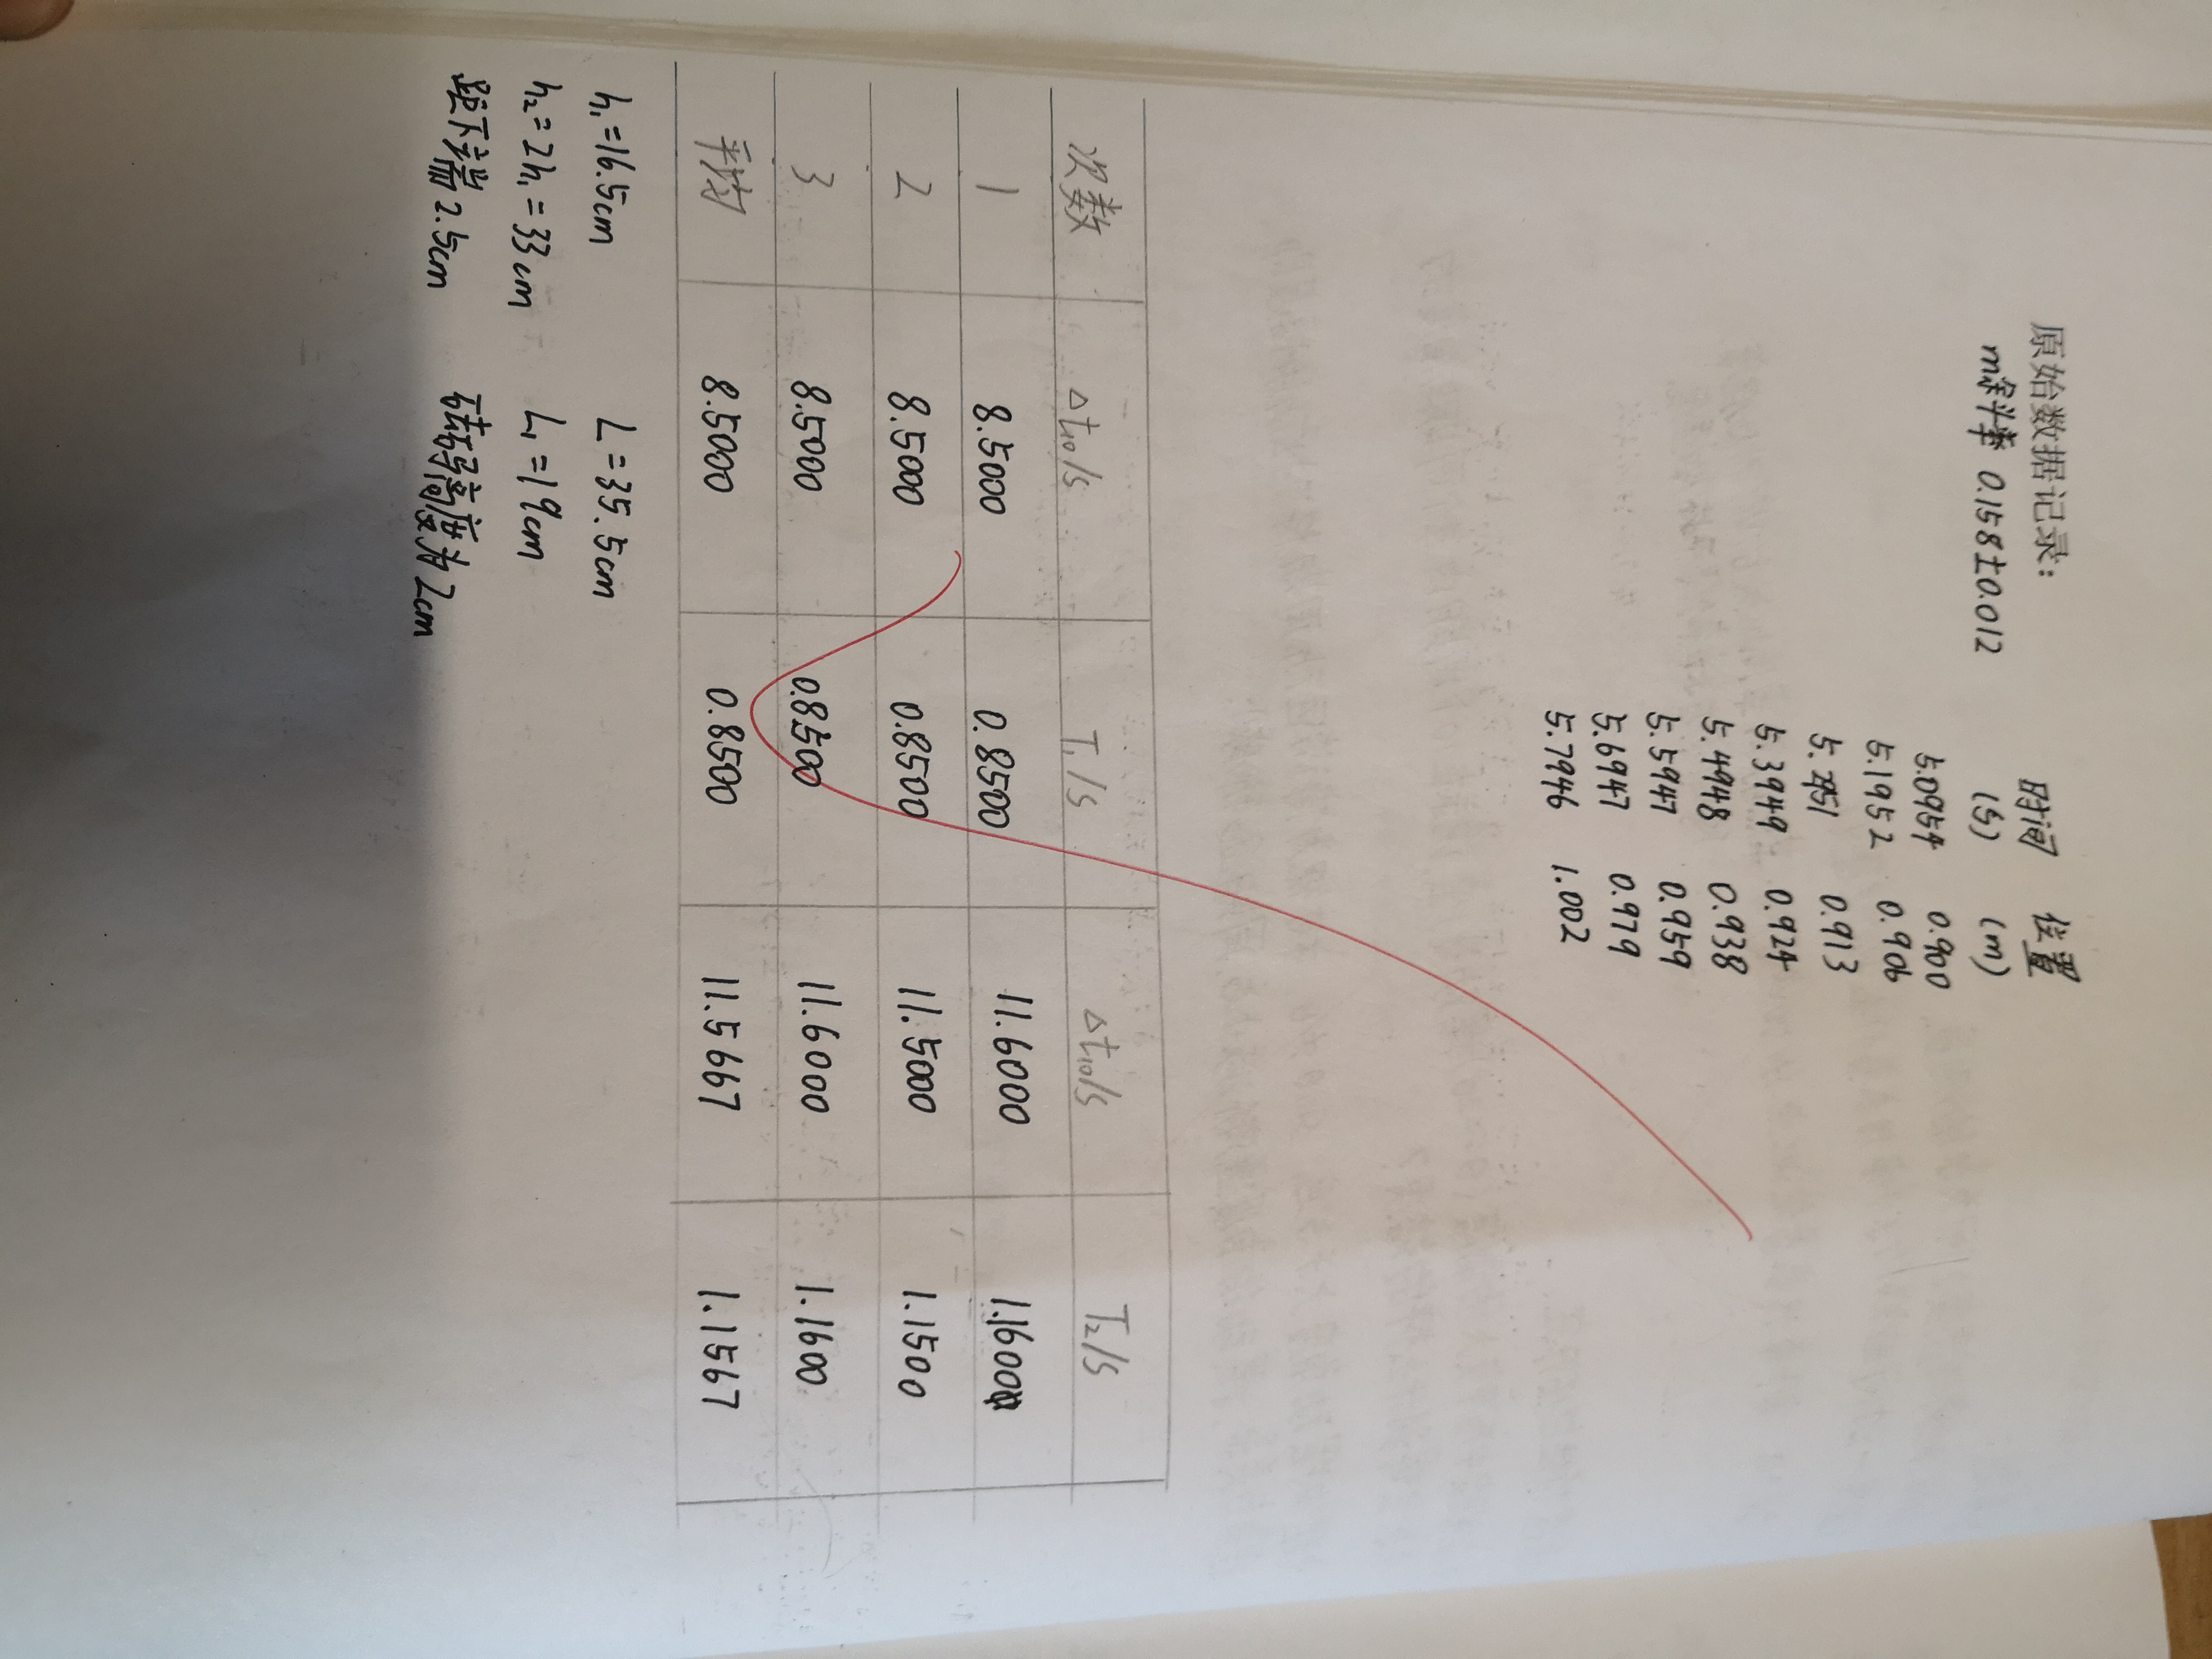 原始数据记录:
m斜率 0.158±0.012
时间 位置
(s) (m)
5.0954 0.900
5.1952 0.906
5.2951 0.913
5.3949 0.924
5.4948 0.938
5.5947 0.959
5.6947 0.979
5.7946 1.002
次数 Δt₁₀/s T₁/s Δt₁₀/s T₂/s
1 8.5000 0.8500 11.6000 1.1600
2 8.5000 0.8500 11.5000 1.1500
3 8.5000 0.8500 11.6000 1.1600
平均 8.5000 0.8500 11.5667 1.1567
h₁=16.5cm L=35.5cm
h₂=2h₁=33cm L₁=19cm
距下端2.5cm 砝码高度为2cm